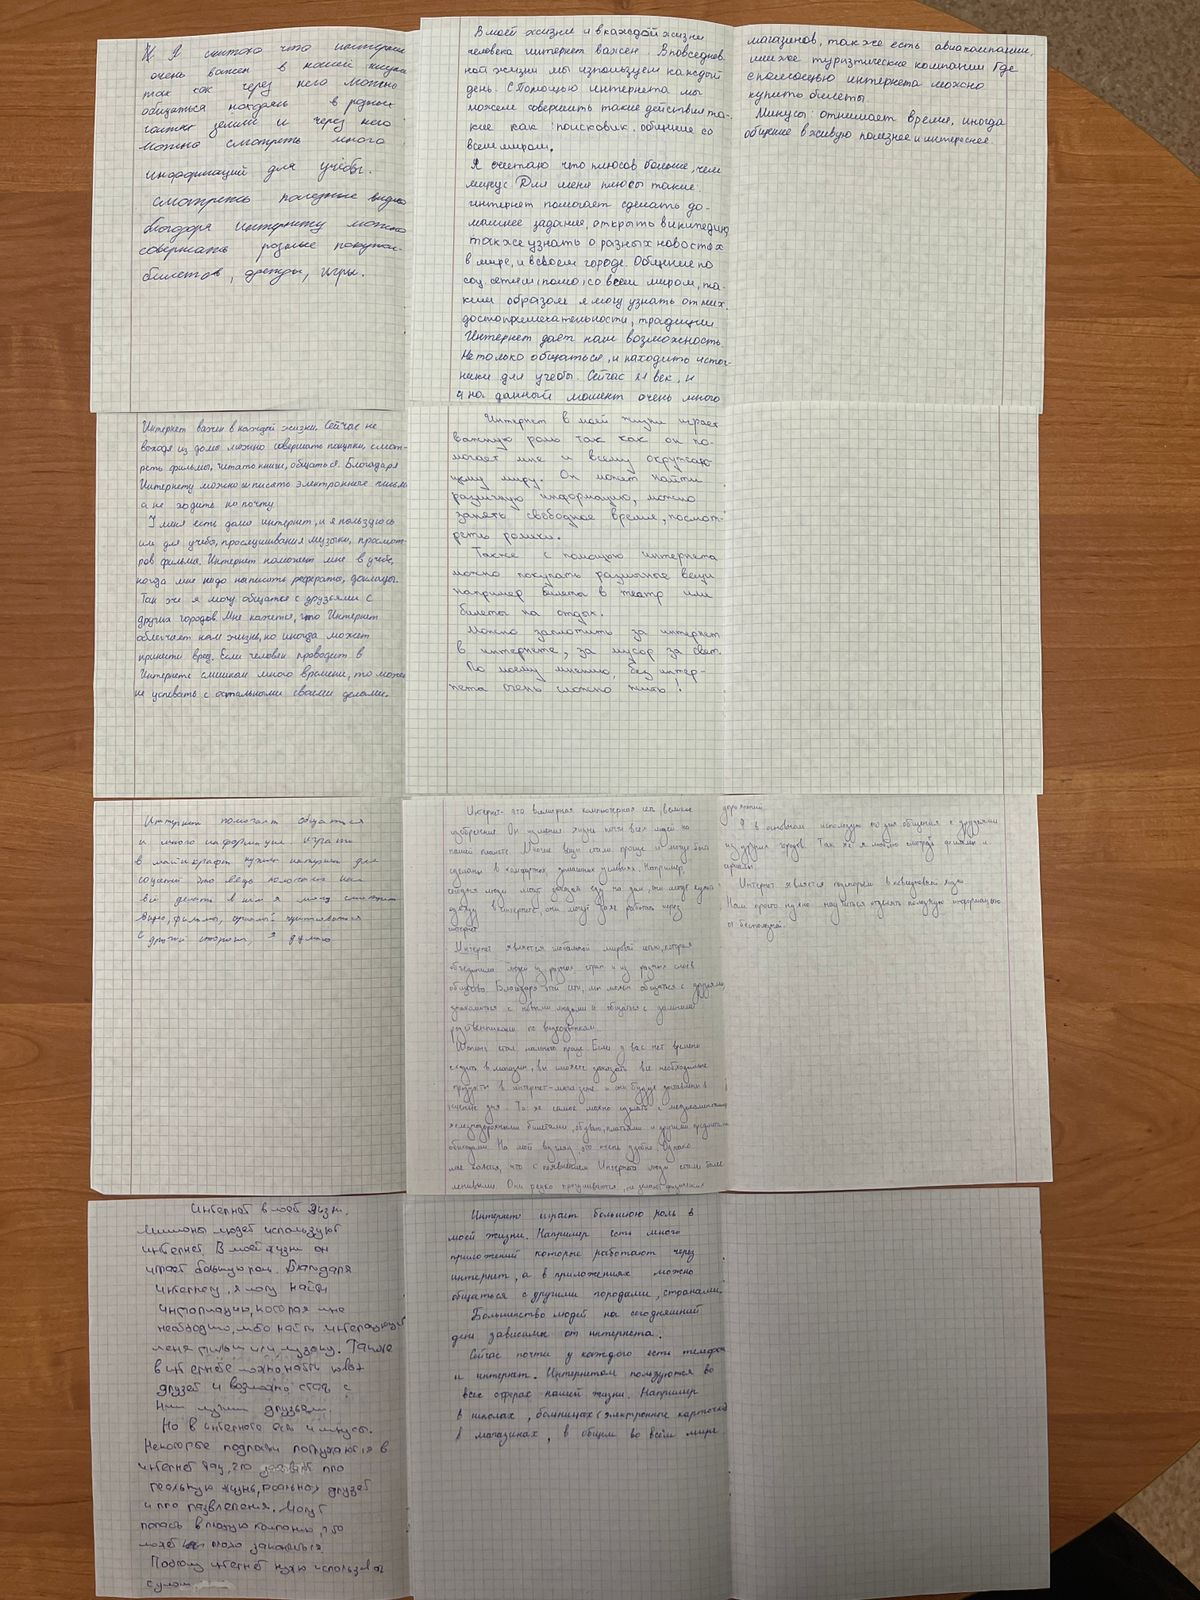 Я считаю что интернет
очень важен в нашей жизни
так как через него можно
общаться находясь в разных
и через него
можно смотреть много
информаций для учёбы.
смотреть полезные видео
благодоря интернету можно
совершать разные покупки
билетов, одежды, игры.
В моей жизни и в каждой жизни
человека интернет важен. В повседнев
ной жизни мы используем каждый
день. С помощью интернета мы
можем совершить такие действия та-
кие как поисковик, общение со
всем миром.
Я считаю что плюсов больше, чем
минус. Для меня плюсы такие:
интернет помогает сделать до-
машнее задание, открыть википедию,
также узнать о разных новостях
в мире, и в своем городе. Общение по
соц. сетям со всем миром, та-
ким образом я могу узнать от них
достопримечательности, традиции.
Интернет дает нам возможность
Не только общаться, и находить источ-
ники для учебы. Сейчас 21 век, и
на данный момент очень много
магазинов, также есть авиакомпании,
также туристические компании где
с помощью интернета можно
купить билеты
Минусы: отнимает время, иногда
общение вживую полезнее и интереснее.
Интернет важен в каждой жизни. Сейчас не
выходя из дома можно совершать покупки, смот-
реть фильмы, читать книги, общаться. Благодаря
Интернету можно писать электронные письма
а не ходить на почту
У меня есть дома интернет, и я пользуюсь
им для учёбы, прослушивания музыки, просмот-
ров фильма. Интернет поможет мне в учёбе,
когда мне надо написать рефераты, доклады.
Так же я могу общатся с друзьями с
других городов. Мне кажется, что Интернет
облегчает нам жизнь, но иногда может
принести вред. Если человек проводит в
Интернете слишком много времени, то может
не успевать с остальными своими делами.
Интернет в моей жизни играет
важную роль так как он по-
могает мне и всему окружаю-
щему миру. Он может найти
различную информацию, можно
занять свободное время, посмот-
реть ролики.
Также с помощью интернета
можно покупать различные вещи
например билеты в театр или
билеты на отдых.
Можно заплотить за интернет
в интернете, за мусор за свет.
По моему мнению, без интер-
нета очень сложно жить!
Интернет помогает общатся
и много информации играть
в майнкрафт нужен интернет для
соцсетей это ведь
всё делать в нём я могу смотреть
видео, фильмы,
с другой стороны, я думаю
Интернет - это всемирная компьютерная сеть великое
изобретение. Он изменил жизнь почти всех людей на
нашей планете. Многие вещи стали проще и могут быть
сделаны в комфортных, домашних условиях. Например,
сегодня люди могут заказать еду на дом, они могут купить
одежду в интернете, они могут даже работать через
интернет.
Интернет является мировой сетью, которая
объединила людей из разных стран и из разных слоёв
общества. Благодаря этой сети, мы можем общаться с друзьями,
знакомиться с новыми людьми и общаться с дальними
родственниками по видеозвонкам.
Шопинг стал намного проще. Если у вас нет времени
сходить в магазин, вы сможете заказать все необходимые
продукты в интернет-магазине и они будут доставлены в
течение дня. То же самое можно сделать с медикаментами,
железнодорожными билетами, обувью, платьями и другими предметами
обихода. На мой взгляд, это очень удобно. Однако
мне кажется, что с появлением Интернета люди стали более
ленивыми. Они редко прогуливаются, не делают физических
упражнений.
Я в основном использую его для общения с друзьями
из других городов. Так же я люблю смотреть фильмы и
сериалы.
Интернет является в повседневной жизни
Нам просто нужно научиться отделять полезную информацию
от бесполезной.
Интернет в моей жизни.
Миллионы людей используют
интернет. В моей жизни он
играет большую роль. Благодаря
интернету, я могу найти
информацию, которая мне
необходимо, либо найти интересующий
меня фильм или музыку. Также
в интернете можно найти новых
друзей и возможно стать с
ними лучшими друзьями.
Но в интернете есть и минусы.
Некоторые подростки погружаются в
интернет про
реальную жизнь, реальных друзей
и про развлечения. Могут
попасть в плохую компанию, что
может плохо закончиться
Поэтому интернет нужно использовать
с умом
Интернет играет большою роль в
моей жизни. Например есть много
приложений которые работают через
интернет, а в приложениях можно
общаться с другими городами, странами.
Большинство людей на сегодняшний
день зависимы от интернета.
Сейчас почти у каждого есть телефон
и интернет. Интернетом пользуются во
всех сферах нашей жизни. Например
в школах, больницах (электронные карточки)
в магазинах, в общем во всём мире